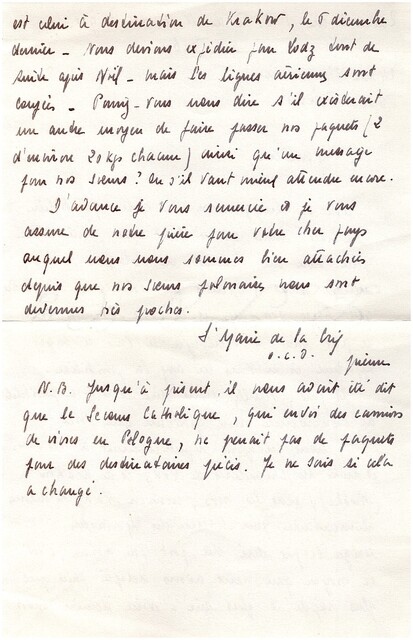 est celui à destination de Krakow, le 6 décembre
dernier - Nous devions expédier pour Lodz tout de
suite après Noël - mais les lignes aériennes sont
coupées - Pourriez-vous nous dire s'il existerait
un autre moyen de faire passer nos paquets (2
d'environ 20 kgs chacune) ainsi qu'un message
pour nos Sœurs? Ou s'il vaut mieux attendre encore.
D'avance je vous remercie et je vous
assure de notre prière pour votre cher pays
auquel nous nous sommes bien attachées
depuis que nos sœurs polonaises nous sont
devenues très proches.
Sr Marie de la Croix
o.c.d. prieure
N.B. Jusqu'à présent, il nous avait été dit
que le Secours Catholique, qui envoi des camions
de vivres en Pologne, ne prenait pas de paquets
pour des destinataires précis. Je ne sais si cela
a changé.